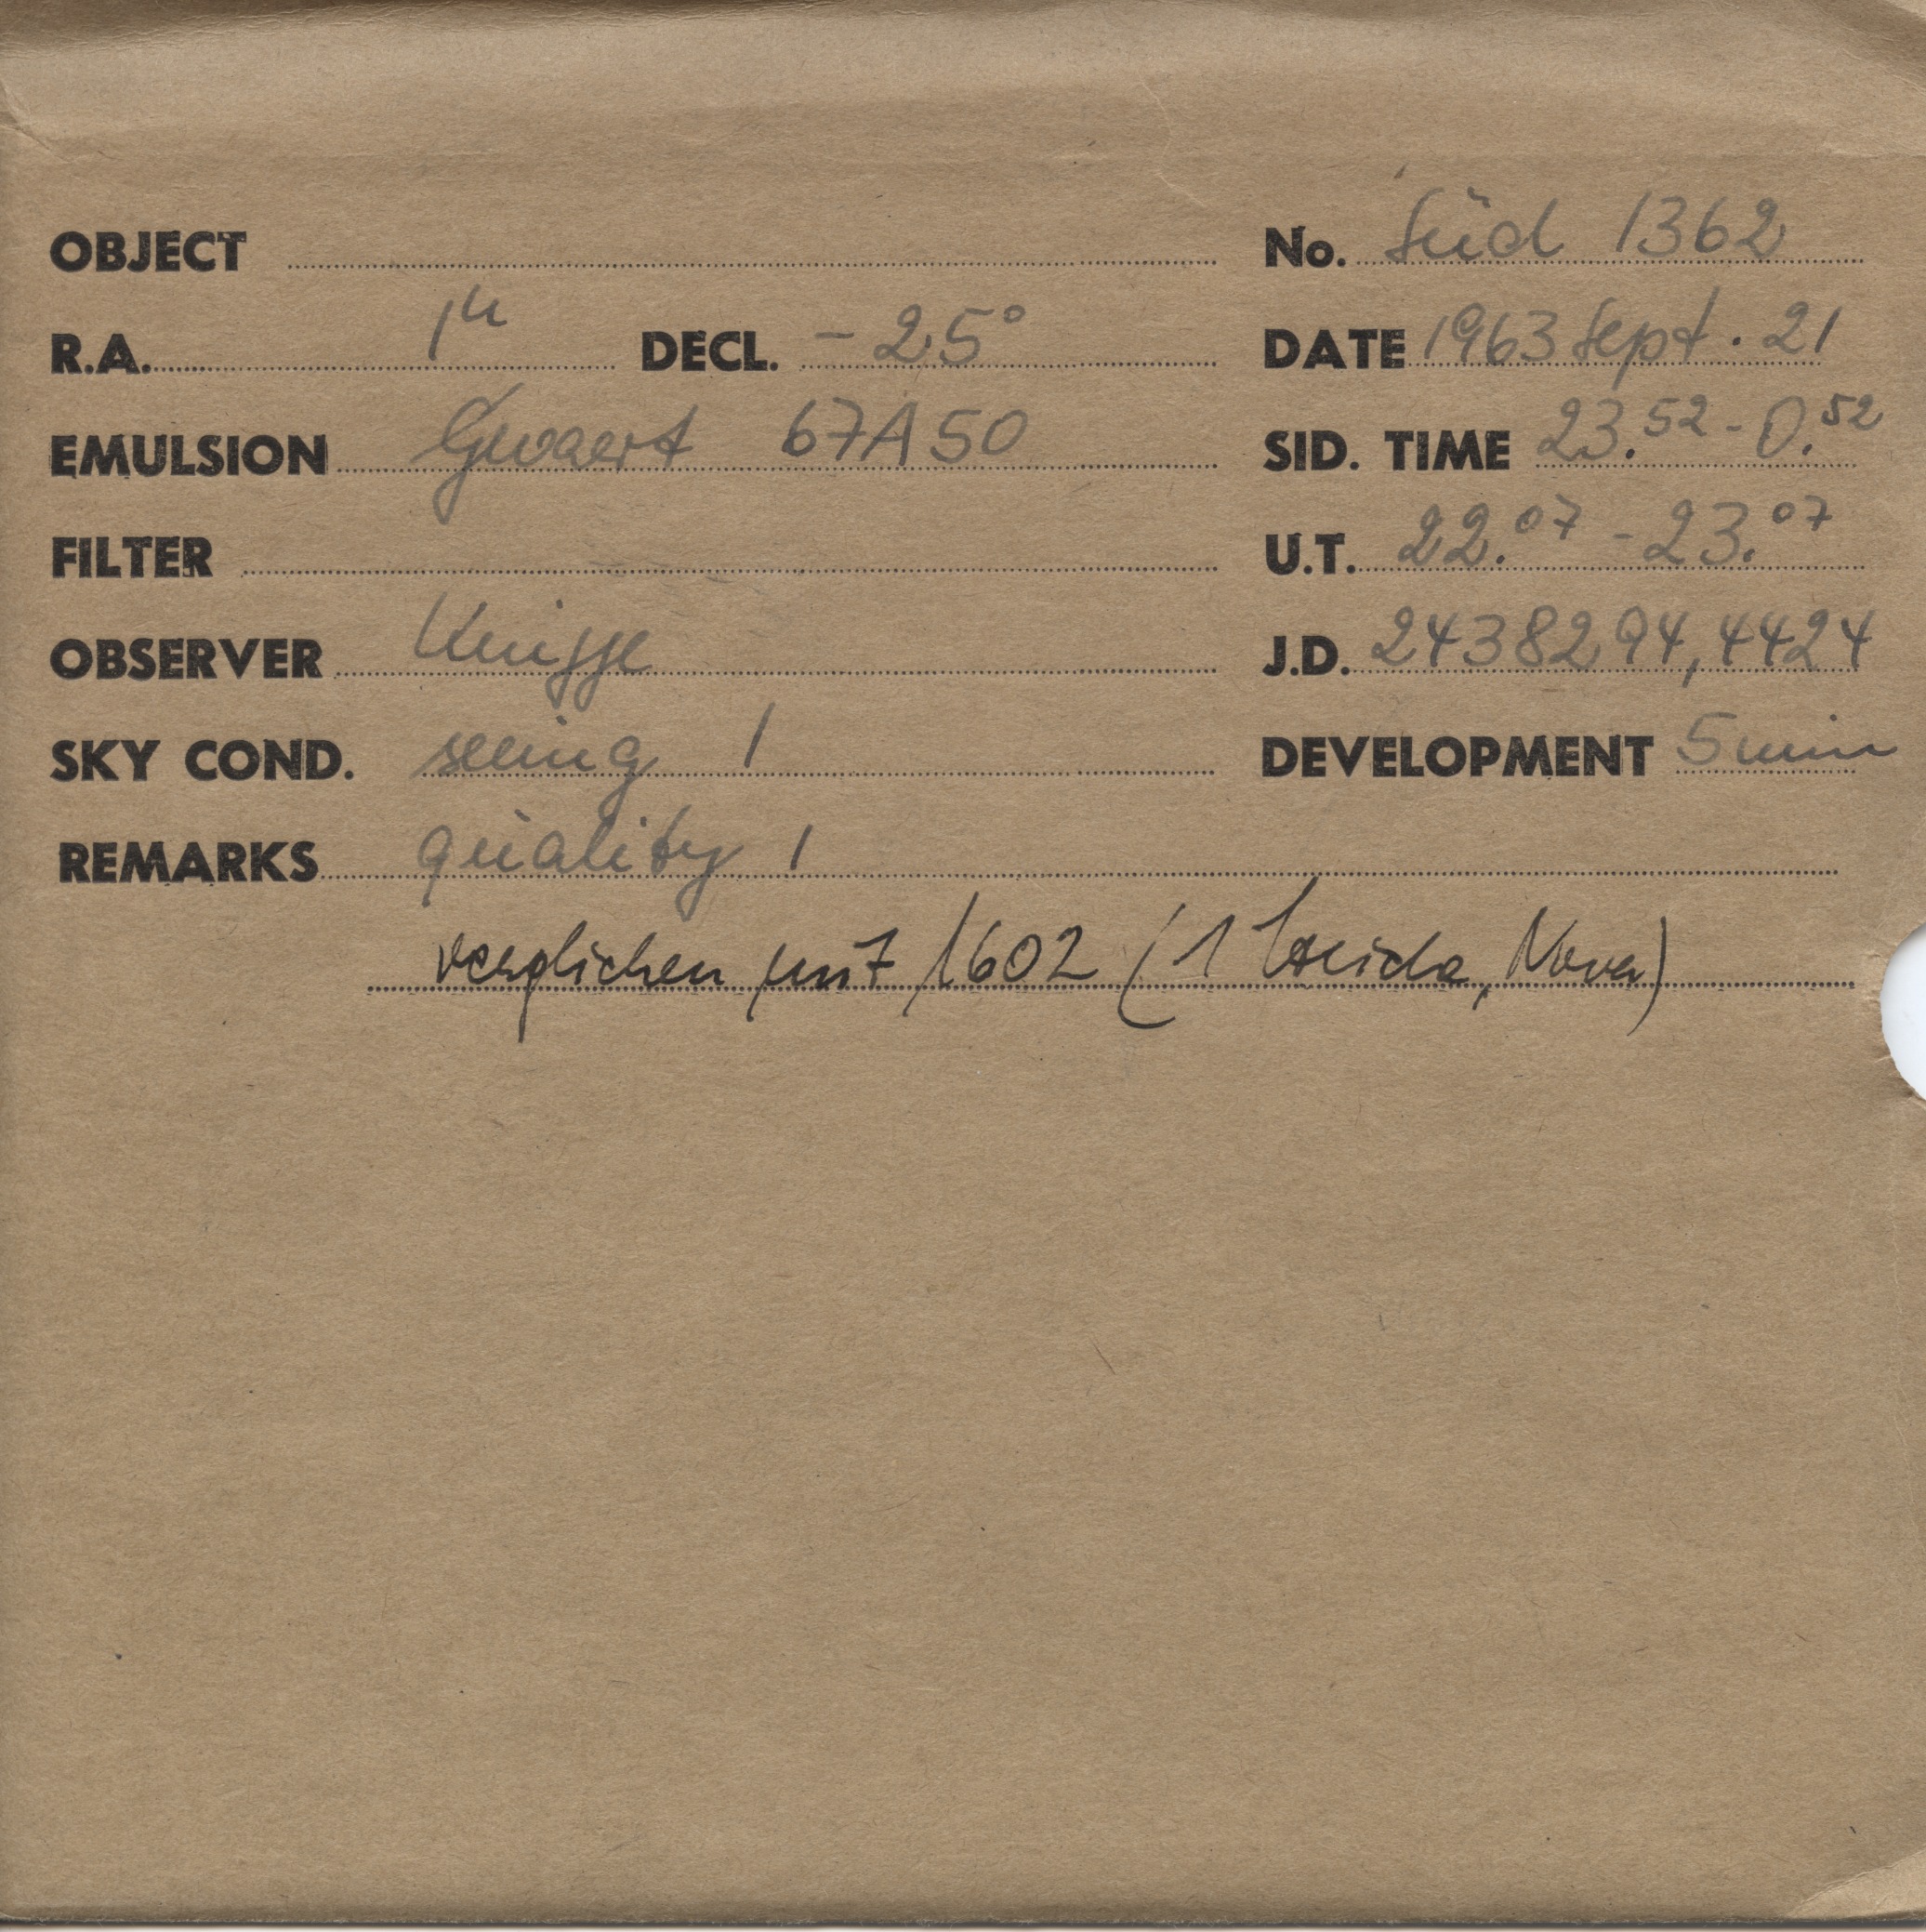 OBJECT No. Süd 1362
R.A. 1h DECL. -25° DATE 1963 Sept. 21
EMULSION Gevaert 67A50 SID. TIME 23.52 - 0.52
FILTER U.T. 22.07 - 23.07
OBSERVER Knigge J.D. 2438294,4424
SKY COND. seeing 1 DEVELOPMENT 5 min
REMARKS quality 1
verglichen mit 1602 (1 Nova)